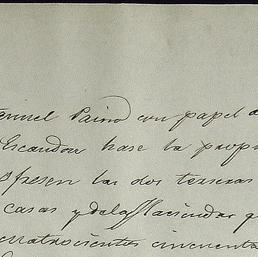 Payno con papel
Escandon hace la prop
ofresen las dos terseras
casas y de las Haciendas q
cuatrocientos cincuenta